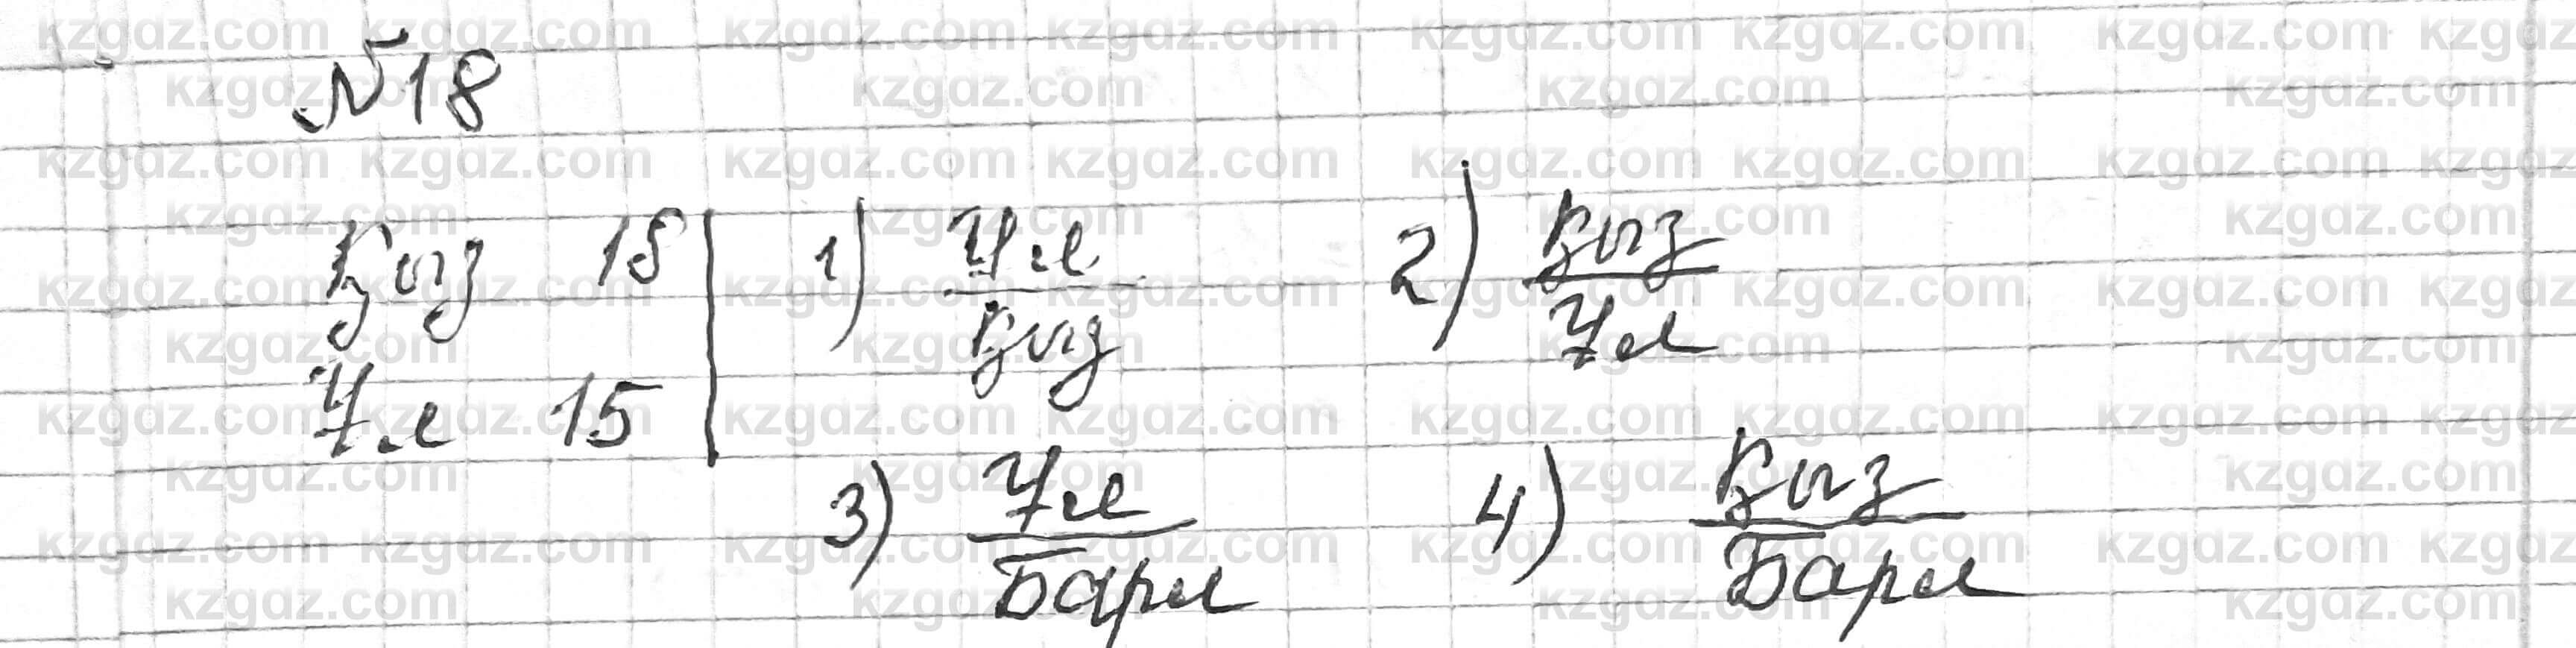 №18
Қыз 18
Ұл 15
1) Ұл
Қыз
2) Қыз
Ұл
3) Ұл
Барл
4) Қыз
Барл
kzgdz.com